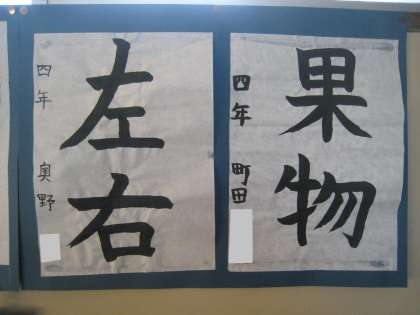 果物
四年 町田
左右
四年 奥野